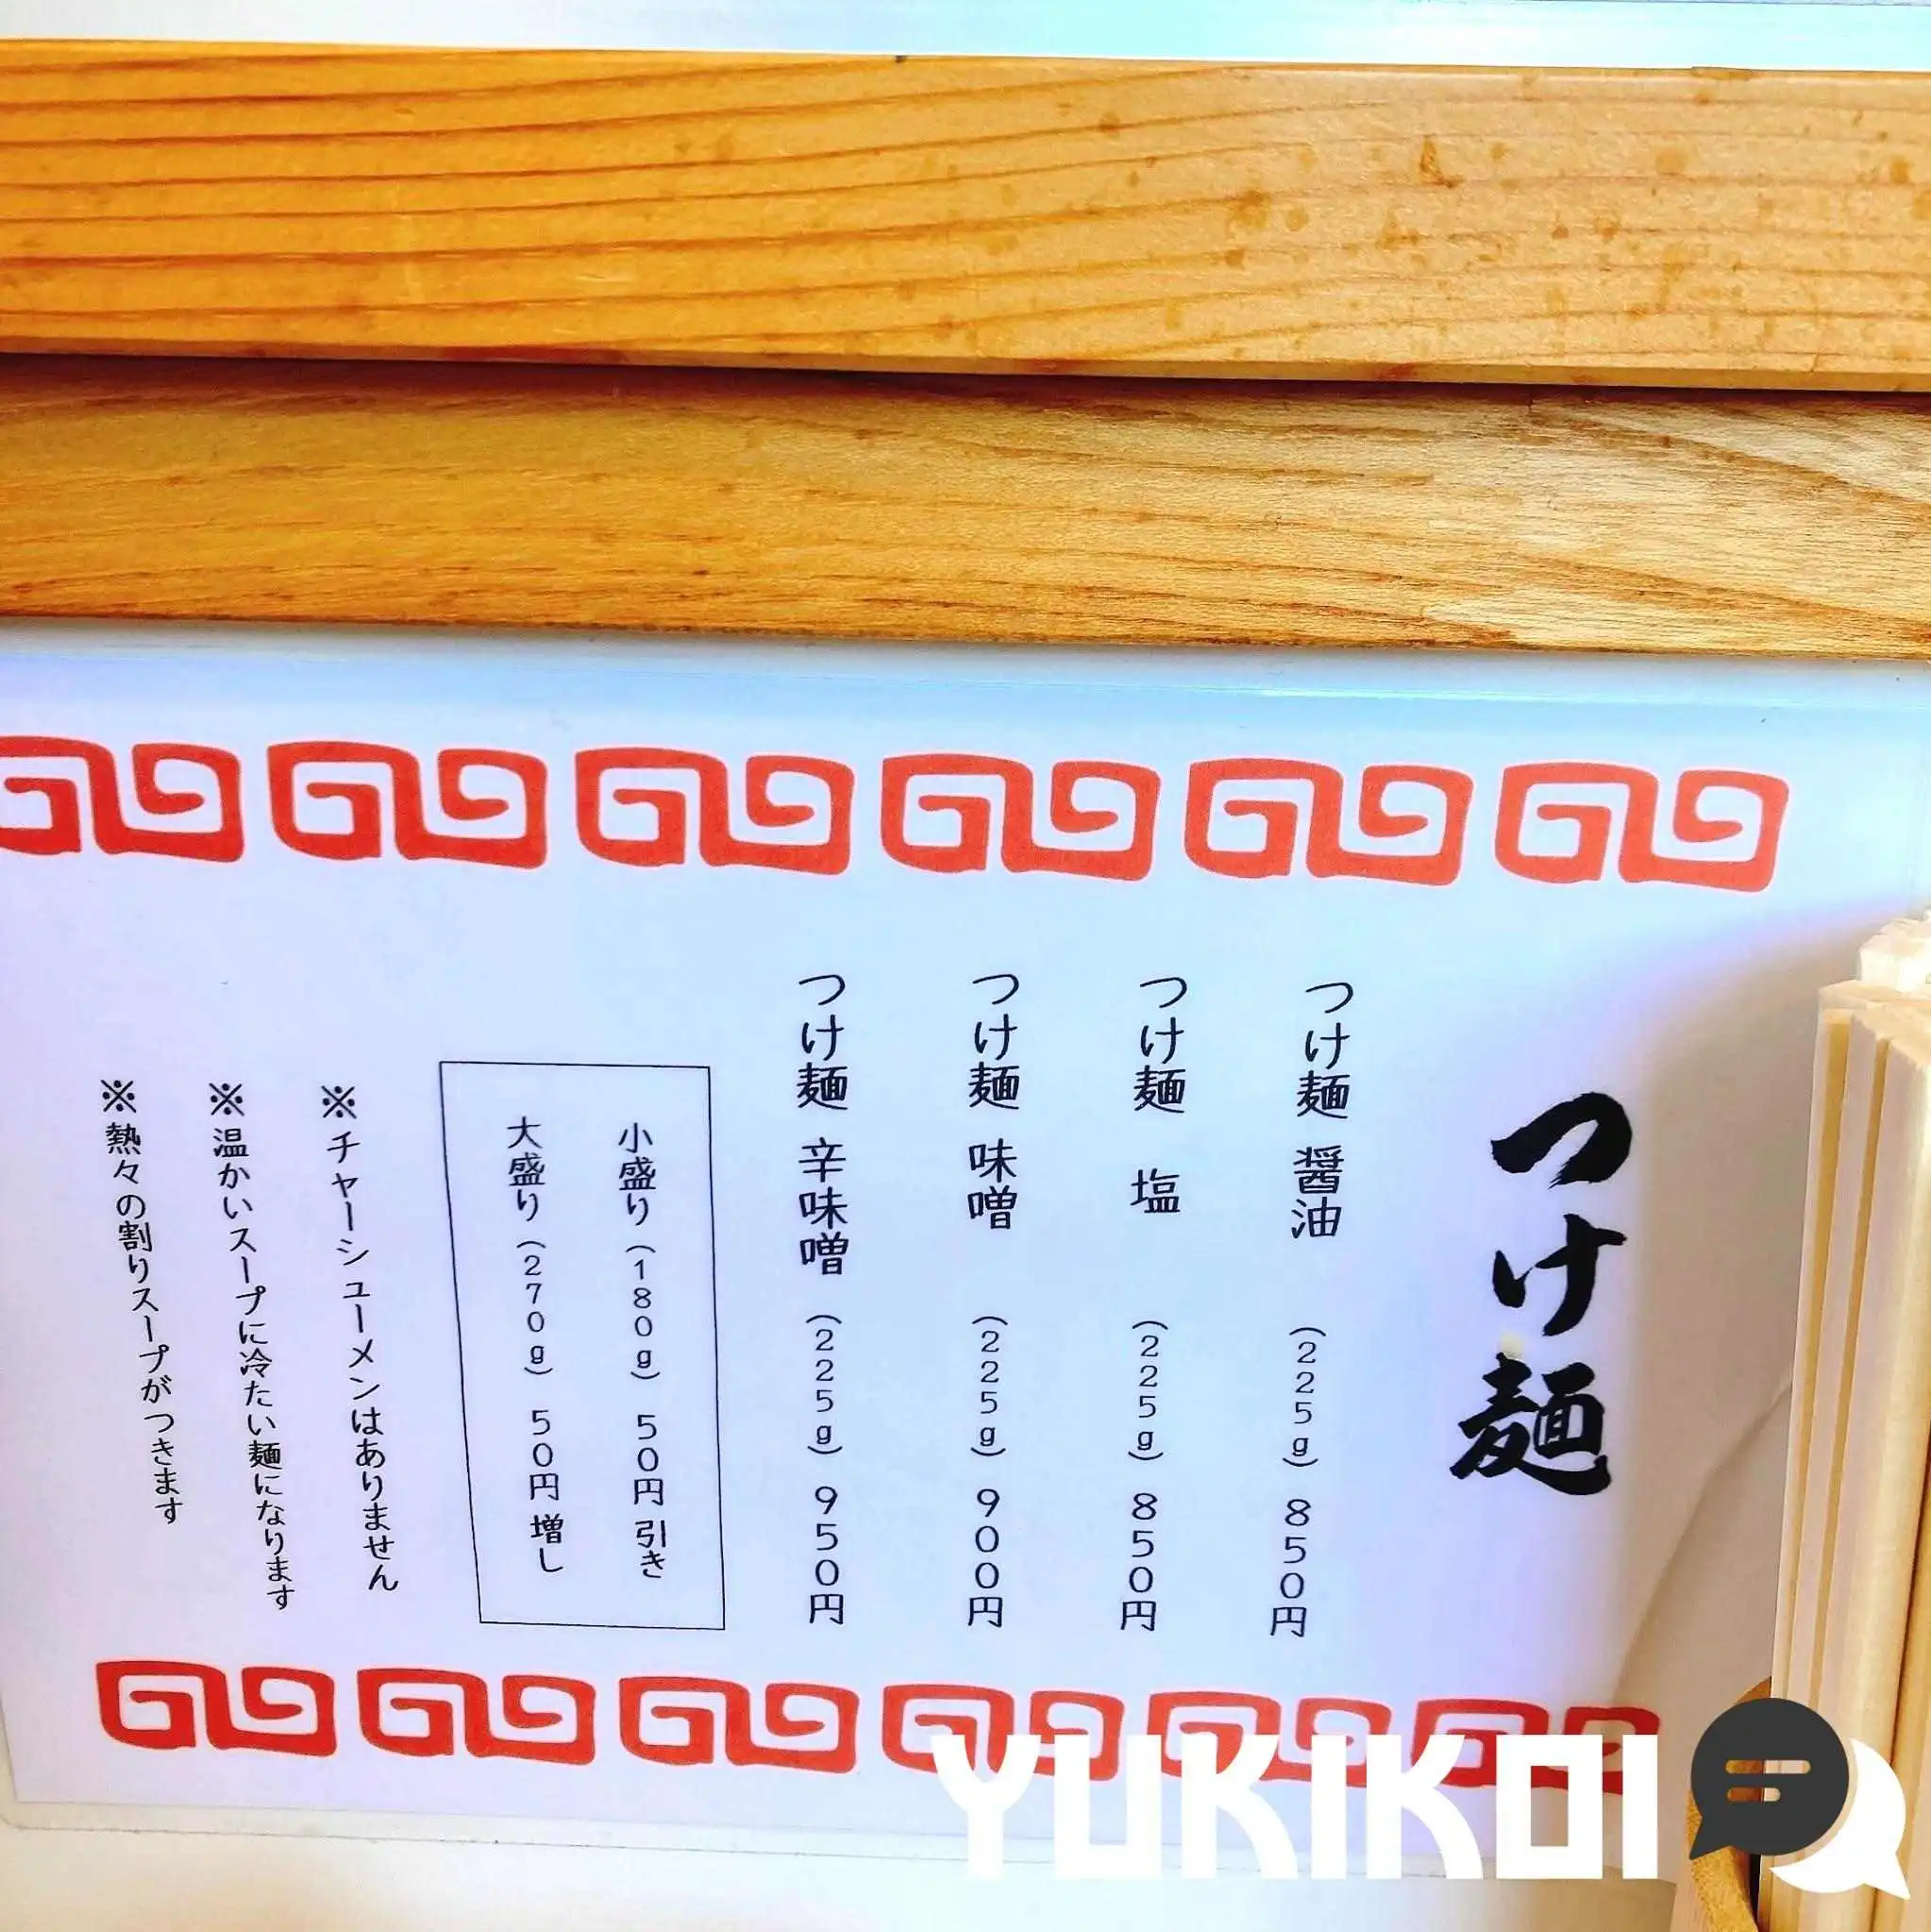 つけ麺
つけ麺 醤油 (225g) 850円
つけ麺 塩 (225g) 850円
つけ麺 味噌 (225g) 900円
つけ麺 辛味噌 (225g) 950円
小盛り (180g) 50円 引き
大盛り (270g) 50円 増し
※チャーシューメンはありません
※温かいスープに冷たい麺になります
※熱々の割りスープがつきます
YUKIKOI